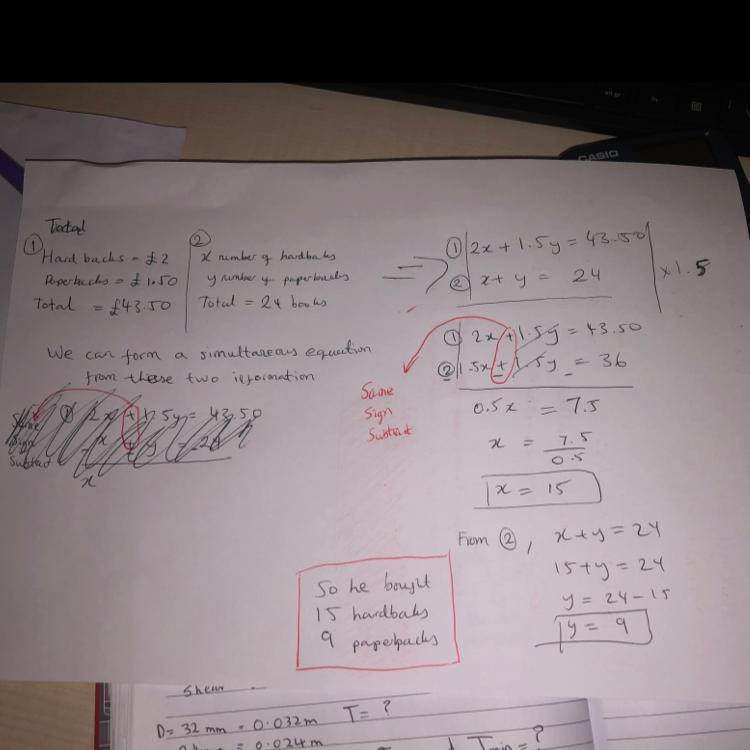 CASIO
Total
① Hard backs = £2
Paperbacks = £1.50
Total = £43.50
②
x number of hardbaks
y number of paperbacks
Total = 24 books
① 2x + 1.5y = 43.50
② x + y = 24
x 1.5
We can form a simultaeous equation
from these two information
① 2x + 1.5y = 43.50
② 1.5x + 1.5y = 36
Same
Sign
Subtract
0.5x = 7.5
x = 7.5
0.5
x = 15
Same
Sign
Subtract
① 2x + 1.5y = 43.50
x
From ②, x + y = 24
15 + y = 24
y = 24 - 15
y = 9
So he bought
15 hardbaks
9 paperbacks
Shear
D = 32 mm = 0.032m T = ?
= 0.024m
Tmin = ?